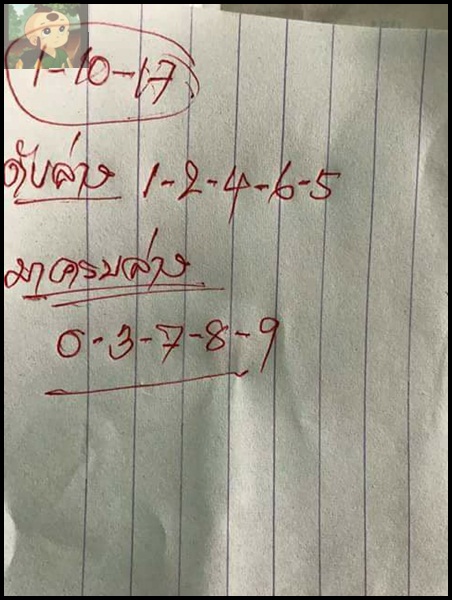 1-10-17
ดับล่าง 1-2-4-6-5
มาครบล่าง
0-3-7-8-9